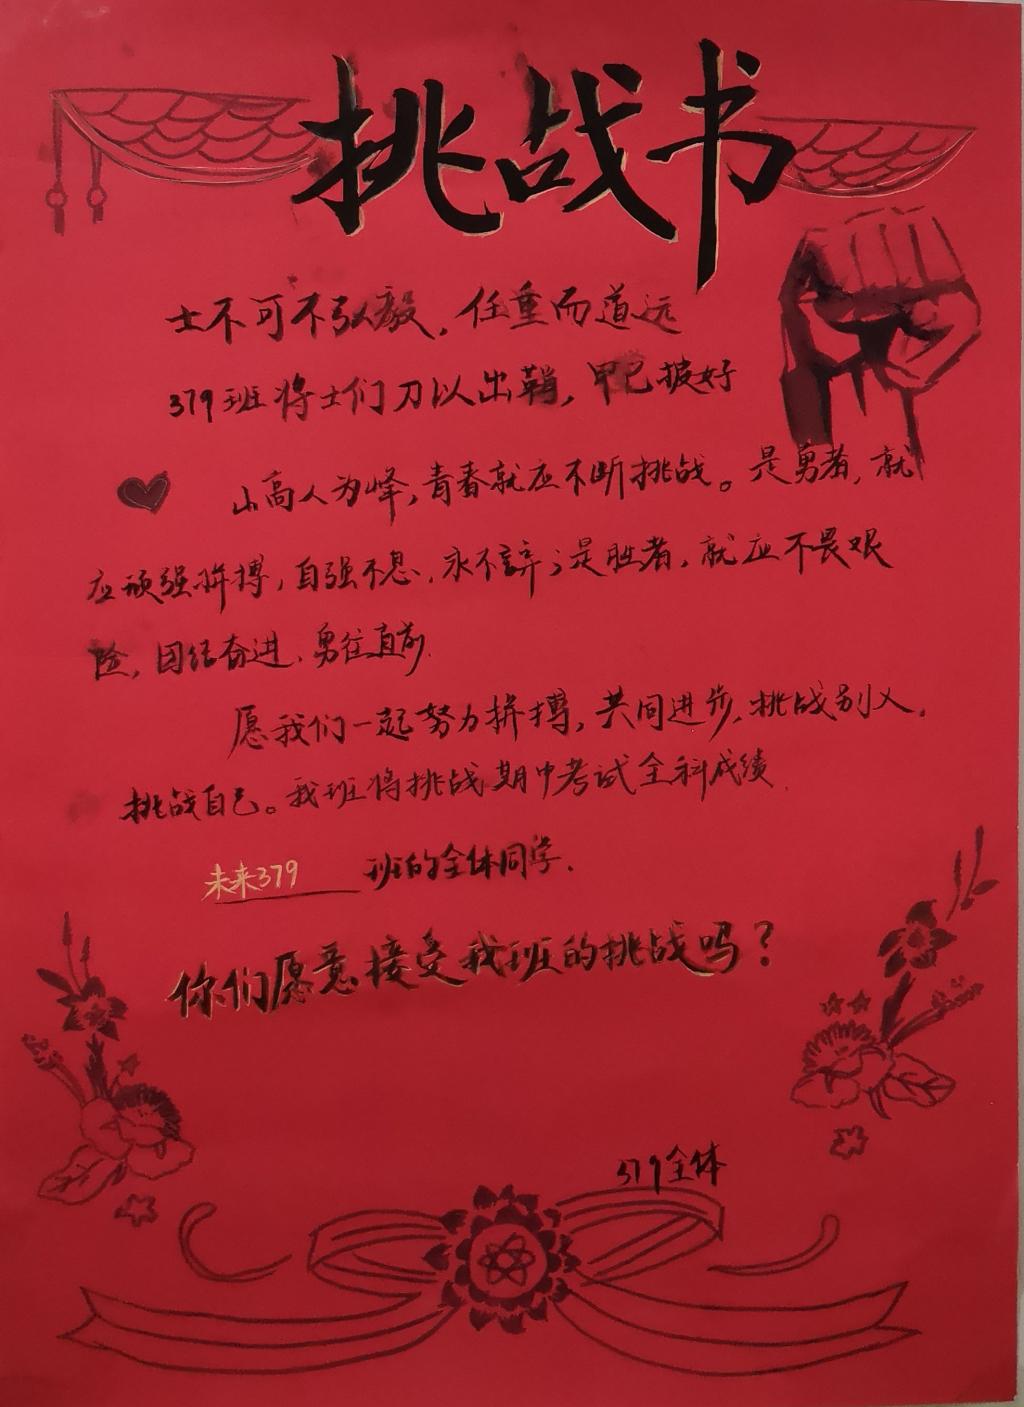 挑战书
士不可不弘毅，任重而道远
379班将士们刀以出鞘，甲已披好
山高人为峰，青春就应不断挑战。是勇者，就
应顽强拼搏，自强不息，永不辞；是胜者，就应不畏艰
险，团结奋进、勇往直前.
愿我们一起努力拼搏，共同进步，挑战别人，
挑战自己。我班将挑战期中考试全科成绩.
未来379 班的全体同学.
你们愿意接受我班的挑战吗？
379全体